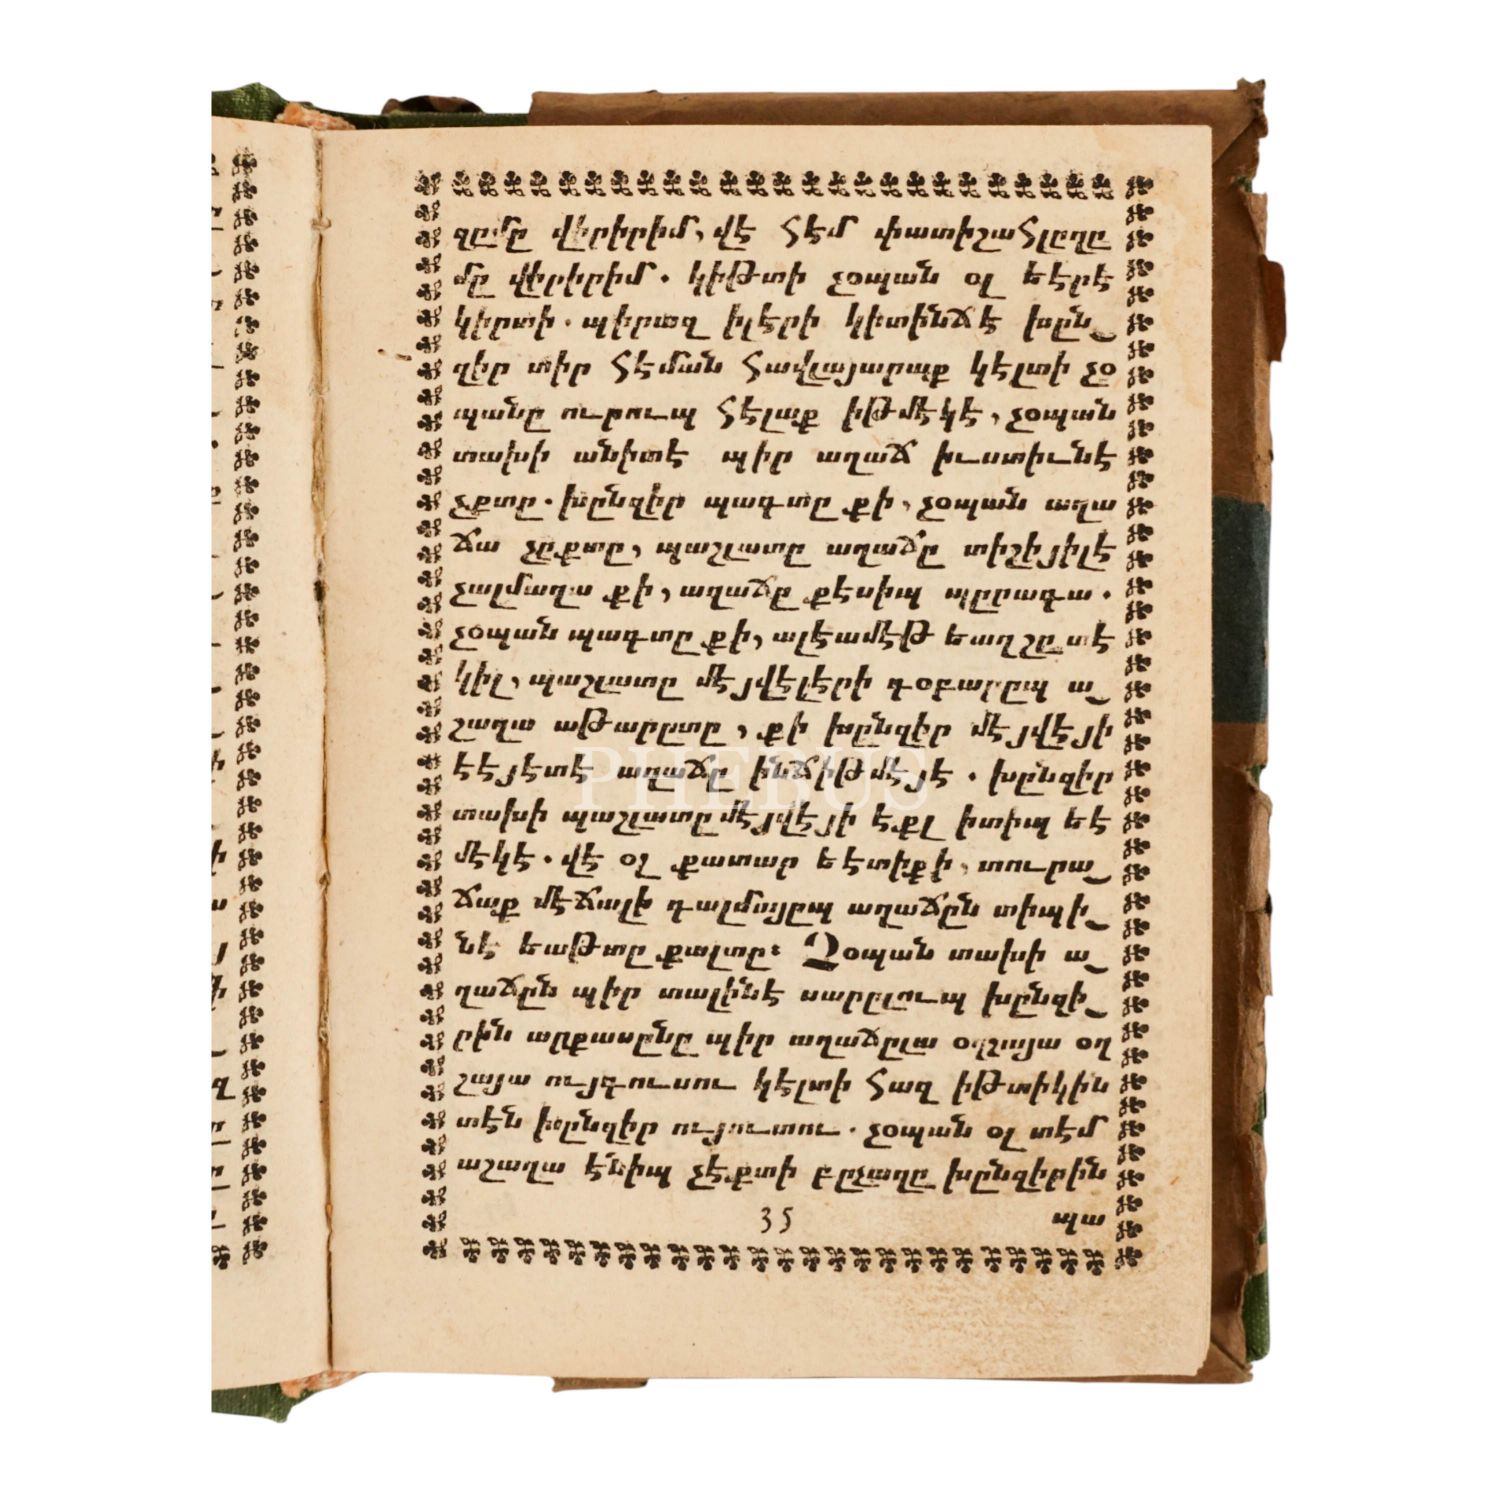 զըմը վէրիրիմ, վէ հէմ փատիշահլըղը
մը վէրիրիմ. կիթտի չօպան օլ եէրէ
կիրտի. պիրազ իլէրի կիտինճէ խըն֊
զիր տիր հէման հավլայարաք կէլտի չօ
պանը ուրուպ հէլաք իթմէկէ, չօպան
տախի անիտէ պիր աղաճ իւստիւնէ
չքտը. խընզիր պագտը քի, չօպան աղա
ճա չըքտը, պաշլատը աղաճը տիշիյիլէ
չալմաղա քի, աղաճը քէսիպ պըրագա.
չօպան պագտը քի, ալէամէթ եաղշը տէ
կիլ, պաշլատը մէյվէլէրի գօբարըպ ա֊
շաղա աթարըտը, քի խընզիր մէյվէյի
էէյէտէ աղաճը ինճիթմէյէ. խընզիր
տախի պաշլատը մէյվէյի էքլ իտիպ եէ
մէկէ. վէ օլ քատար եէտիքի, տուրա֊
ճաք մէճալի գալմայըպ աղաճըն տիպի֊
նէ եաթտը քալտը։ Չօպան տախի ա֊
ղաճըն պիր տալինէ սարըլուպ խընզի֊
րին արքասընը պիր աղաճըլա օղշայա օղ
շայա ույգուսու կէլտի հազ իթտիկին
տէն խընզիր ույուտու. չօպան օլ տէմ
աշաղա էնիպ չէքտի բըչաղը խընզիրին
35 պա
PHEBUS